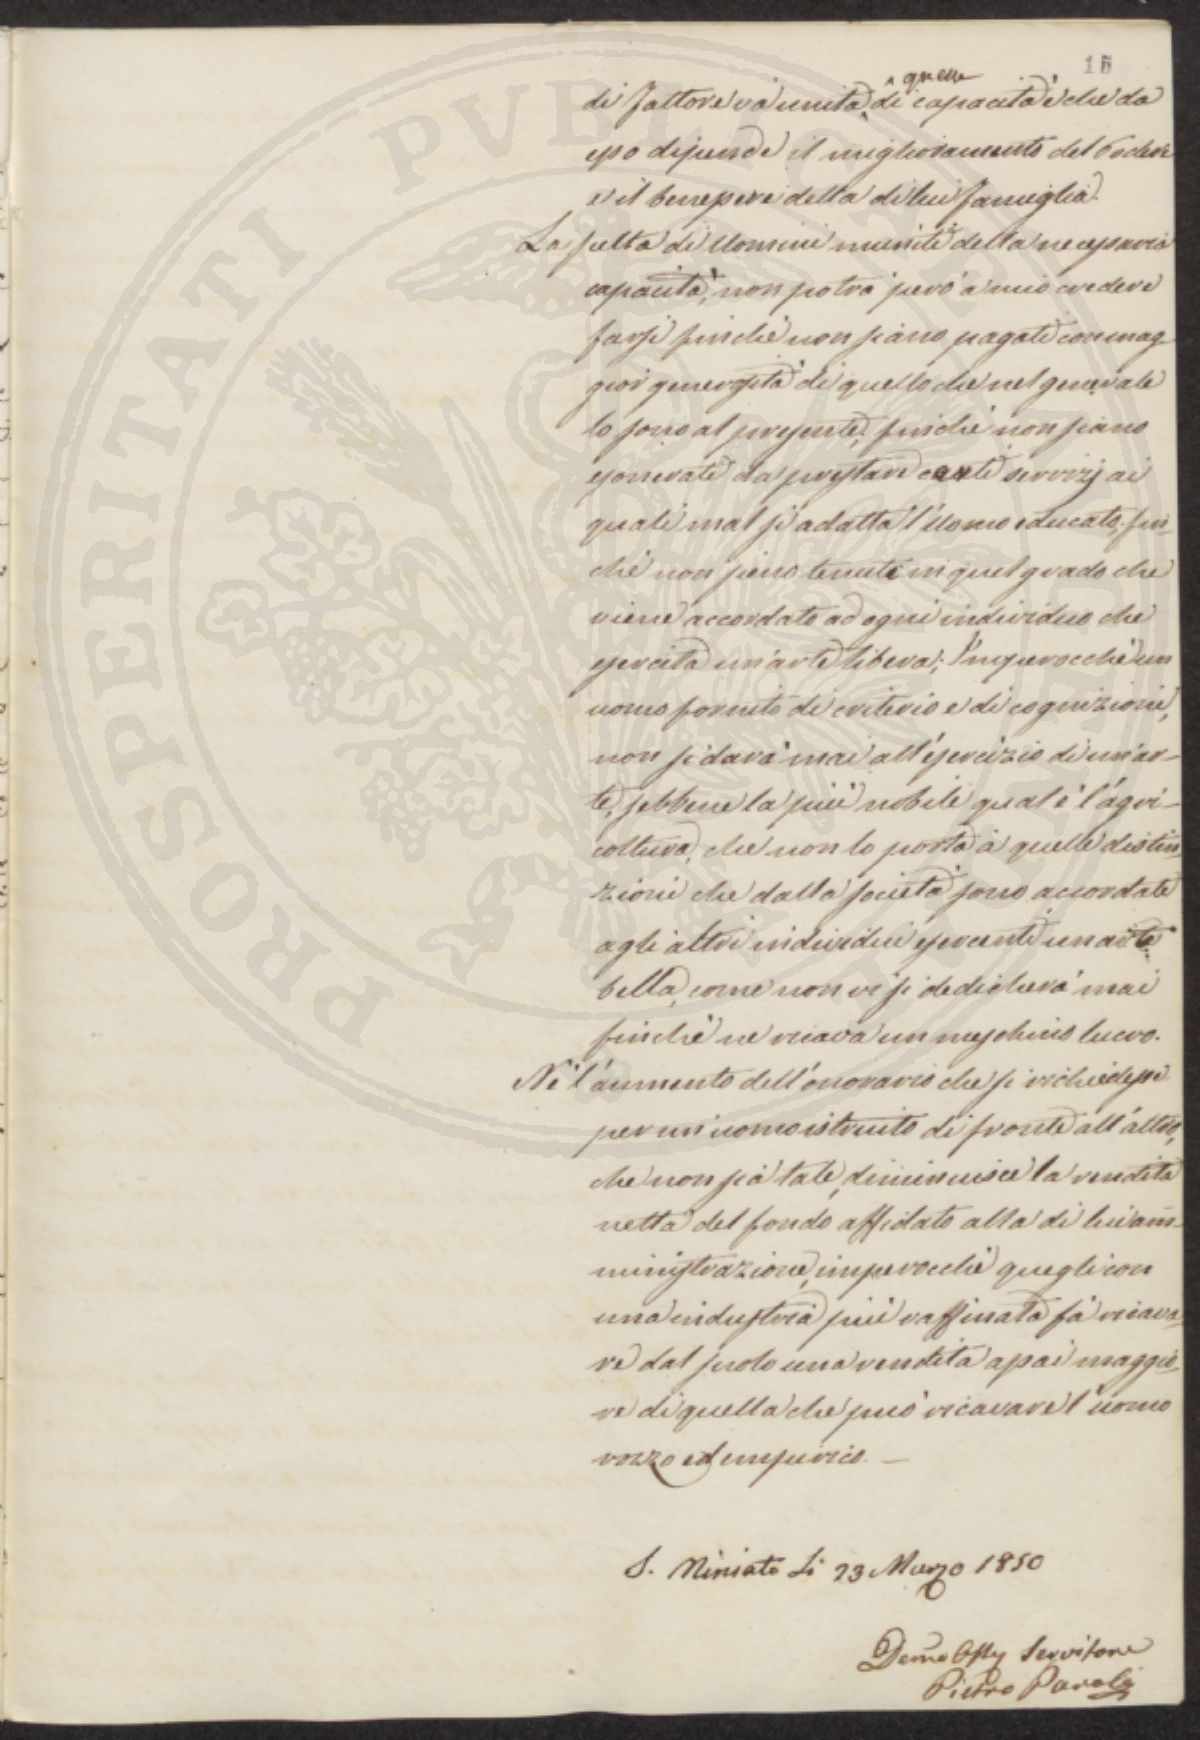 15
quelle
di Fattore và unita, di capacità è che da
esso dipende il miglioramento del Podere
e il benessere della di lui famiglia.
La scelta di Uomini muniti della necessaria
capacità, non potrà però a mio credere
farsi finchè non siano pagati con mag
gior generosità di quello che nel generale
lo sono al presente; finchè non siano
esonerati da prestare certi servizj ai
quali mal si adatta l'Uomo educato, fin-
chè non sieno tenuti in quel grado che
viene accordato ad ogni individuo che
esercita un'arte libera; Imperocchè un
uomo fornito di criterio e di cognizioni,
non si darà mai all'esercizio di un'ar-
te, sebbene la più nobile qual è l'agri-
coltura, che non lo porta a quelle distin-
zioni che dalla società sono accordate
agli altri individui esercenti un arte
bella, come non vi si dedicherà mai
finchè ne ricava un meschino lucro.
Nè l'aumento dell'onorario che si richiedesse
per un uomo istruito di fronte all'altro,
che non sia tale, diminuisce la rendita
netta del fondo affidato alla di lui am-
ministrazione, imperocchè quegli con
una industria più raffinata fà ricava-
re dal suolo una rendita assai maggio-
re di quella che può ricavare l'uomo
rozzo ed empirico. —
S. Miniato Li 23 Marzo 1850
Devmo Obbg Servitore
Pietro Paroli
PROSPERITATI PUBLICAE